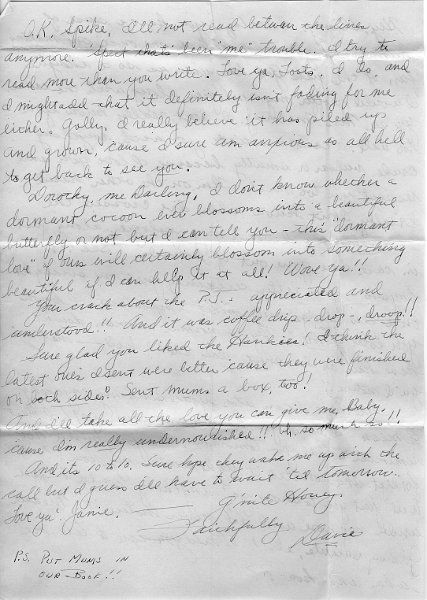 O.K. Spike, I'll not read between the lines
anymore. 'Spect that's been "me" trouble. I try to
read more than you write. Love ya, Toots. I do, and
I might add that it definitely isn't fading for me
either. Golly, I really believe it has piled up
and grown, cause I sure am anxious as all hell
to get back to see you.
Dorothy, me Darling, I don't know whether a
dormant cocoon ever blossoms into a beautiful
butterfly or not but I can tell you - this "dormant
love" of ours will certainly blossom into something
beautiful if I can help it at all! Wuve ya!!
You crack about the P.J. - appreciated and
understood!! And it was coffee drip, drop-, droop!!
Sure glad you liked the Hankies! I think the
latest ones I sent were better cause they were finished
on both sides. Sent Mums a box, too!
And I'll take all the love you can give me, Baby.
cause I'm really undernourished!! Oh, so much so!!
And its 10 to 10. Sure hope they wake me up with the
call but I guess I'll have to wait 'til tomorrow.
Love ya' Janie. — G'nite Honey.
Faithfully
Davie
P.S. PUT MUMS IN
OUR-BOOK!!